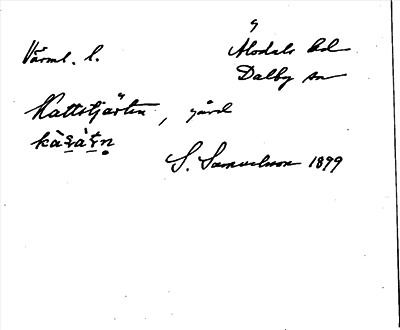 Värml. l. Älvdals hd
Dalby sn
Kattstjärten, gård
S. Samuelsson 1899